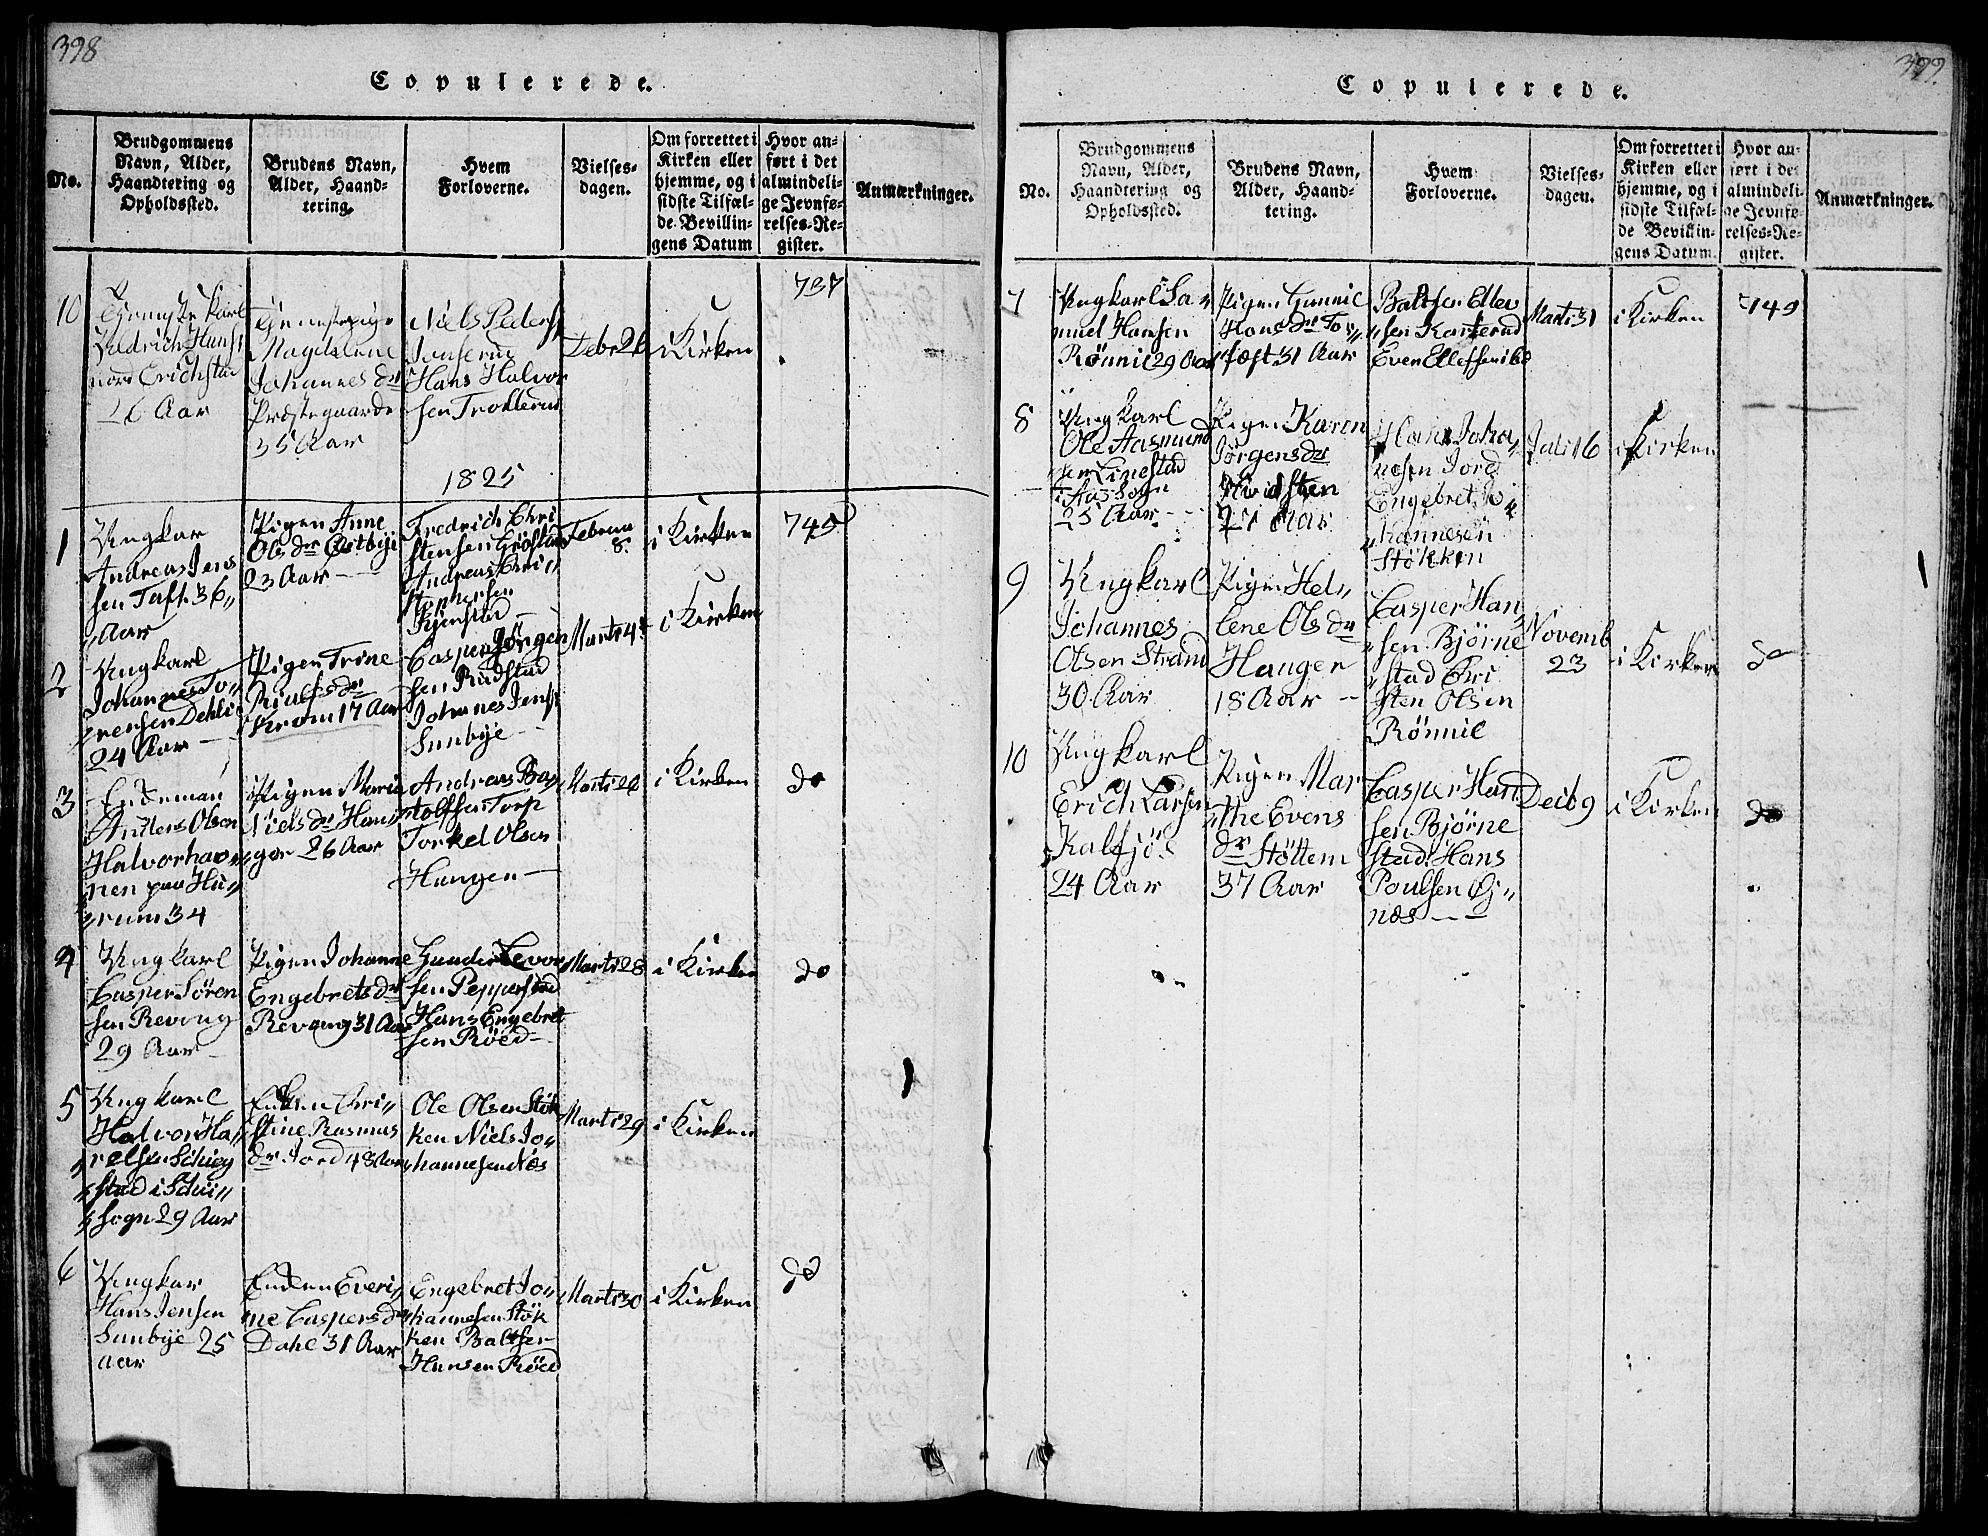 398
Copulerede.
No.
Brudgommens
Navn, Alder,
Haandtering og
Opholdssted.
Brudens Navn,
Alder, Haand-
tering.
Hvem
Forloverne.
Vielses-
dagen.
Om forrettet i
Kirken eller
hjemme, og i
sidste Tilfæl-
de Bevillin-
gens Datum
Hvor an-
ført i det
almindeli-
ge Jevnfø-
relses-Re-
gister.
Anmærkninger.
10
Tjeneste karl
nord Erichstad
26 Aar
Tjenestepige
Magdalene
Johannes dr
Præstegaarde
35 Aar
Niels Peders
Hans Halvor
sen Troklerud
Debr 26
i Kirken
737
1825
1
Ungkar
Andreas Jens
sen Taft. 36
Aar
Pigen Anne
Ols dr Østbÿe
23 Aar
Fredrich Chri
stensen
Andreas Chri
stophersen
Kjenstad
Februa
8
i Kirken
745
2
Ungkarl
Johannes To
rensen Dehli
24 Aar
Pigen Trine
Krom 17 Aar
Casper Jörgen
sen Rudstad
Johannes Jens
Sunbÿe
Marti 4
i Kirken
3
Enkeman
Anders Olsen
Halvorhav
nen paa Hu
rum 34
Pigen Maria
Niels dr Hau
ger 26 Aar
Andreas Bas
tolfsen Torp
Torkel Olsen
Haugen
Marti 26
i Kirken
do
4
Ungkarl
Casper Sören
sen Revoug
29 Aar
Pigen Johanne
Engebrets dr
Revoug 31 Aar
Gunder Evor
sen Pepperstad
Hans Engebret
sen Röed
Marti 28
i Kirken
do
5
Ungkarl
Halvor Ha
relsen Schieg
stad i Schi
sogn 29 Aar
Enken Chri
stine Rasmus
dr Jord 48 Aar
Ole Olsen Stök
ken Niels Jo
hannesen Næs
Marti 29
i Kirken
6
Ungkar
Hans Jensen
Sunbÿe 25
Aar
Enken Everi
ne Caspers dr
Dahl 31 Aar
Engebret Jo
hannesen Stök
ken Baltser
Hansen Röed
Marti 30
i Kirken
do
399.
Copulerede.
No.
Brudgommens
Navn, Alder,
Haandtering og
Opholdssted.
Brudens Navn,
Alder, Haand-
tering.
Hvem
Forloverne.
Vielses-
dagen.
Om forrettet i
Kirken eller
hjemme, og i
sidste Tilfæl-
de Bevillin-
gens Datum.
Hvor an-
ført i det
almindeli-
ge Jevnfø-
relses-Re-
gister.
Anmærkninger.
7
Ungkarl Sa
muel Hansen
Rönnie 29 Aar
Pigen Gunnil
Hans dr To
fæst 31 Aar
Baltser Ellev
sen Karterud
Even Ellefsen ibd
Marti 31
i Kirken
749
8
Ungkarl
Ole Aasmund
sen Linestad
i Aas Sogn
25 Aar
Pigen Karen
Jörgens dr
Hvidsten
27 Aar
Hans Joha
nesen Jord
Engebret Jo
hannesen
Stökken
Juli 16
i Kirken
9
Ungkarl
Johannes
Olsen Strand
30 Aar
Pigen Hel
lene Ols dr
Hauger
18 Aar
Casper Han
sen Bjørne
stad Chri
sten Olsen
Rönnie
Novemb
23
i Kirken
do
10
Ungkarl
Erich Larsen
Kalfjös
24 Aar
Pigen Mar
the Evens
dr Støttem
37 Aar
Casper Han
sen Bjørne
stad. Hans
Poulsen Øj
næs
Decb 9
i Kirken
do